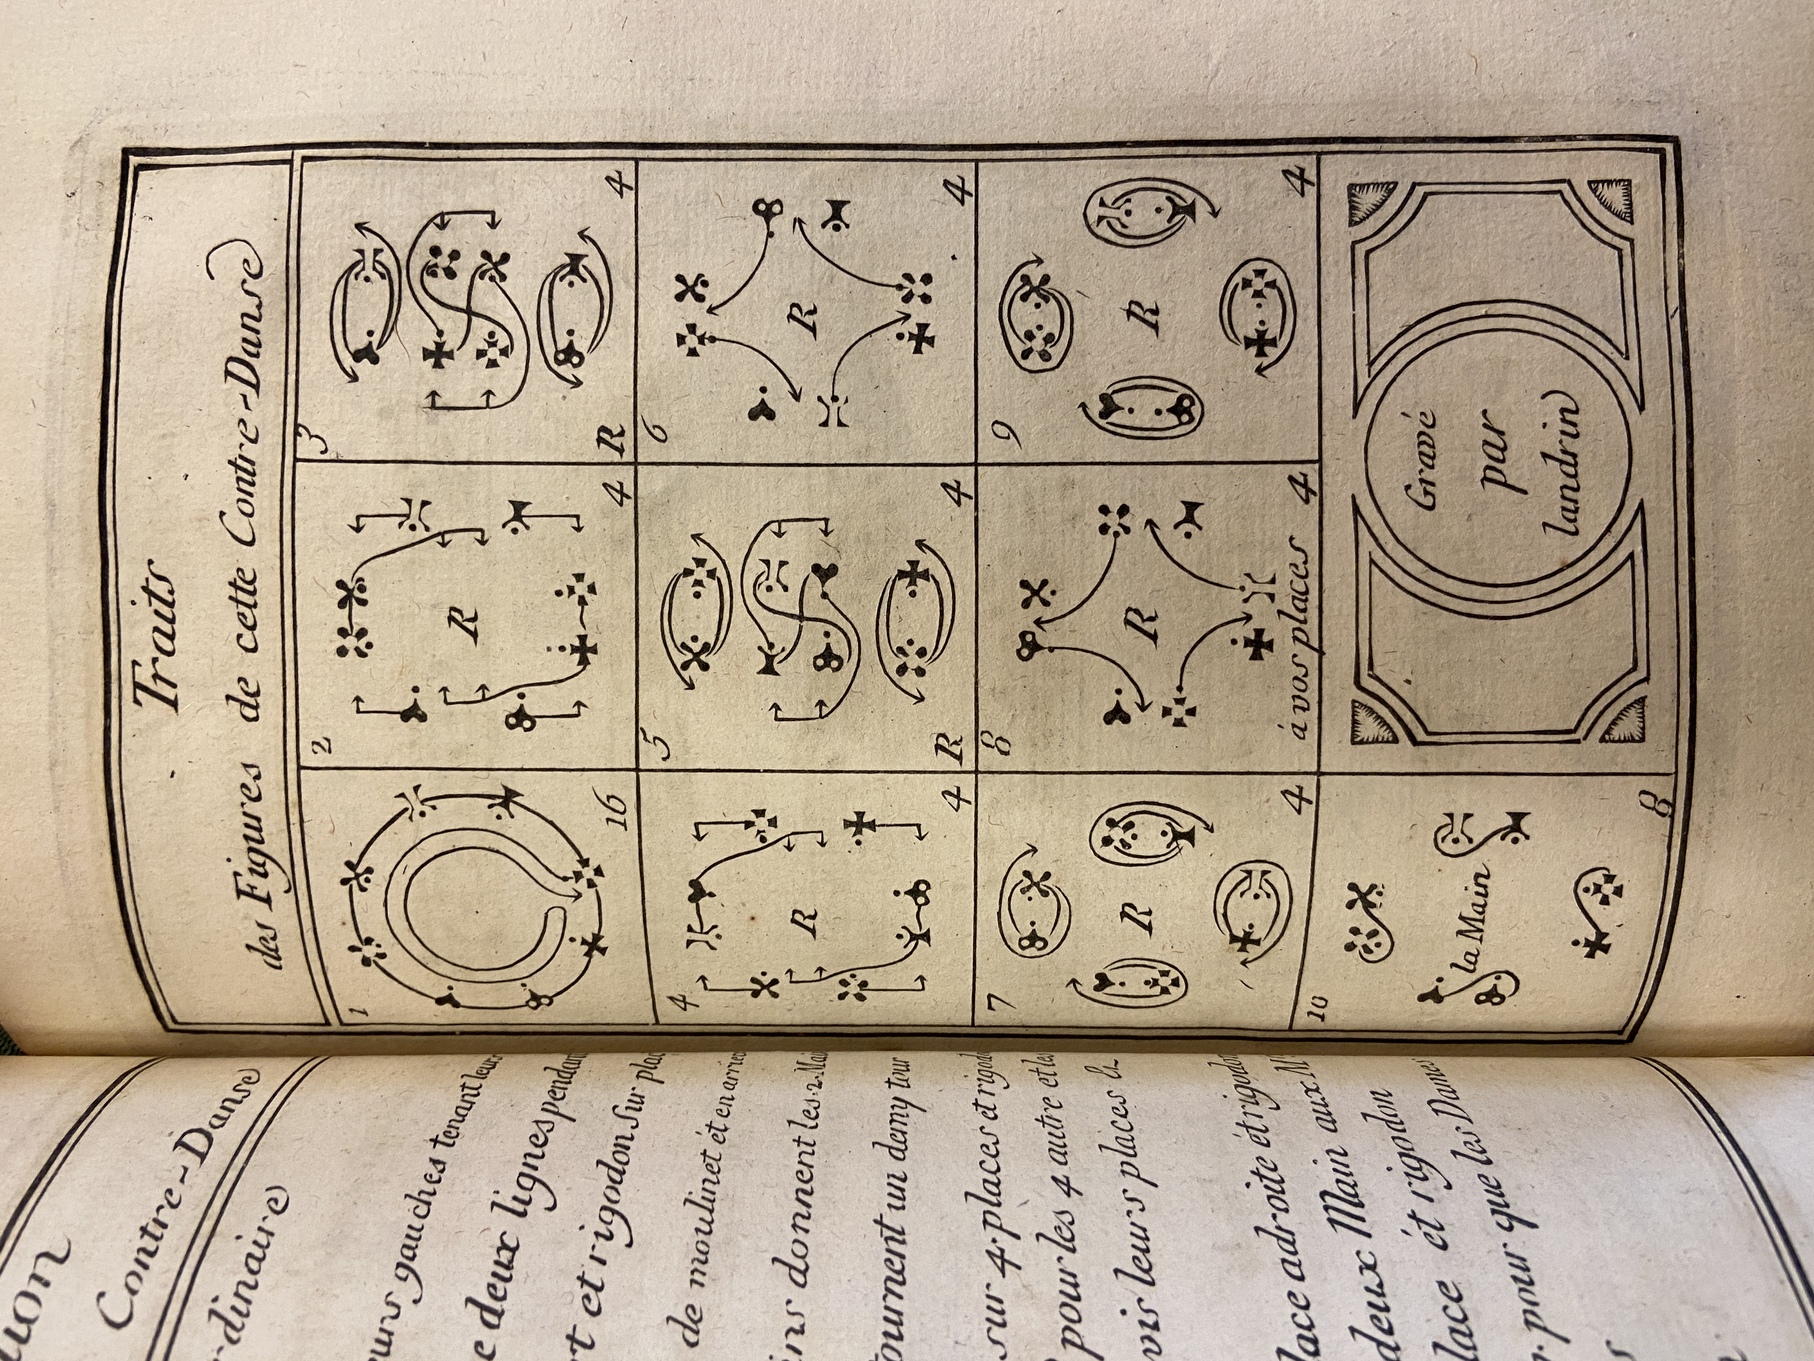 Traits
des Figures de cette Contre-Danse
1
16
2
R
4
3
R
4
4
R
4
5
R
4
6
R
4
7
R
4
8
R
à vos places
4
9
R
4
10
la Main
8
Gravé
par
landrin
Contre-Danse
gauches tenant leurs
deux lignes pendant
et rigodon sur
de moulinet et en
donnent les 2
un demy tour
sur 4 places et
pour les 4 autre et
leurs places
adroite et
deux Main aux
et rigodon
pour que les Dames